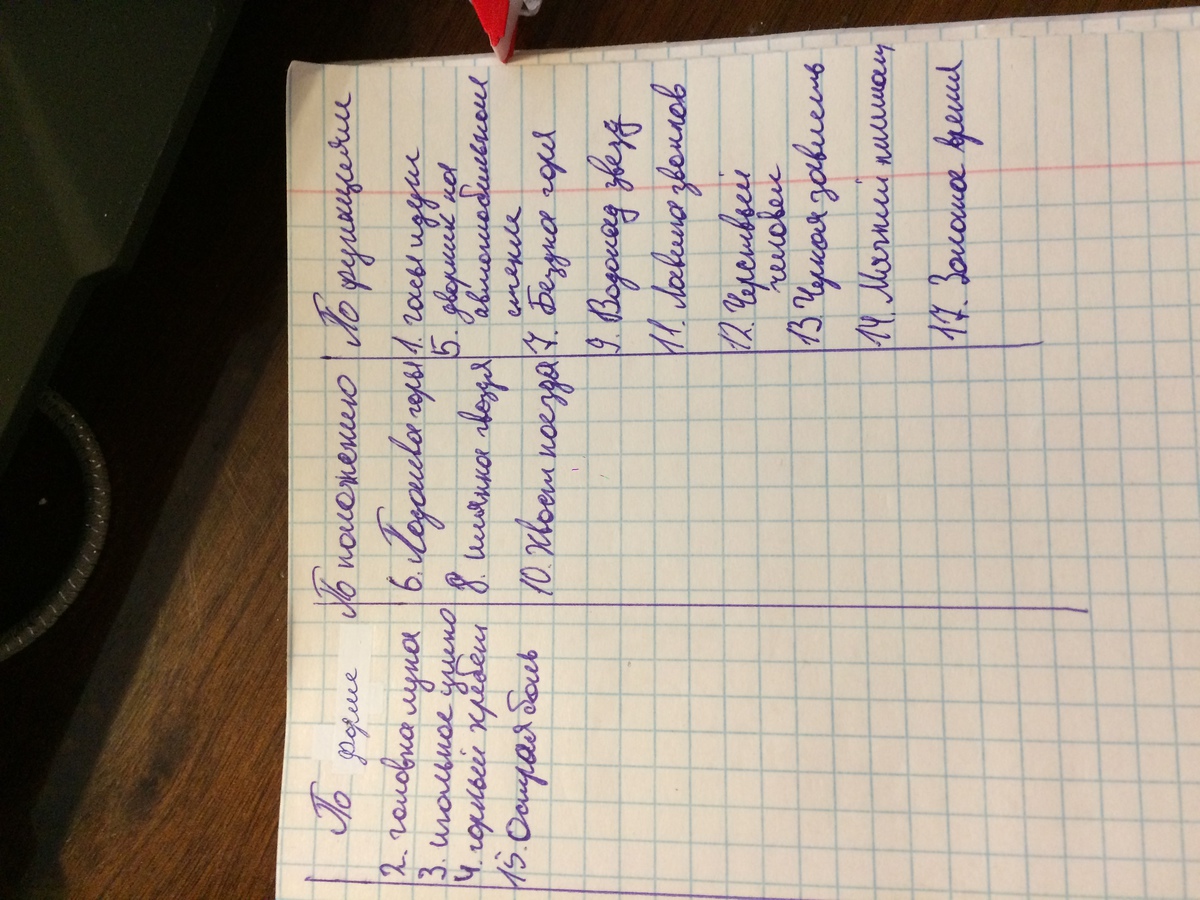 По форме
2. головка лука
3. игольное ушко
4. горный хребет
15. Острая боль
По положению
6. Подошва горы
8. шляпка гвоздя
10. Хвост поезда
По функциям
1. часы идут
5. дворник на
автомобильном
стекле
7. Бездна горя
9. Водопад звезд
11. Лавина звонков
12. Черствый
человек
13 Черная зависть
14. Мягкий
17. Золотое время